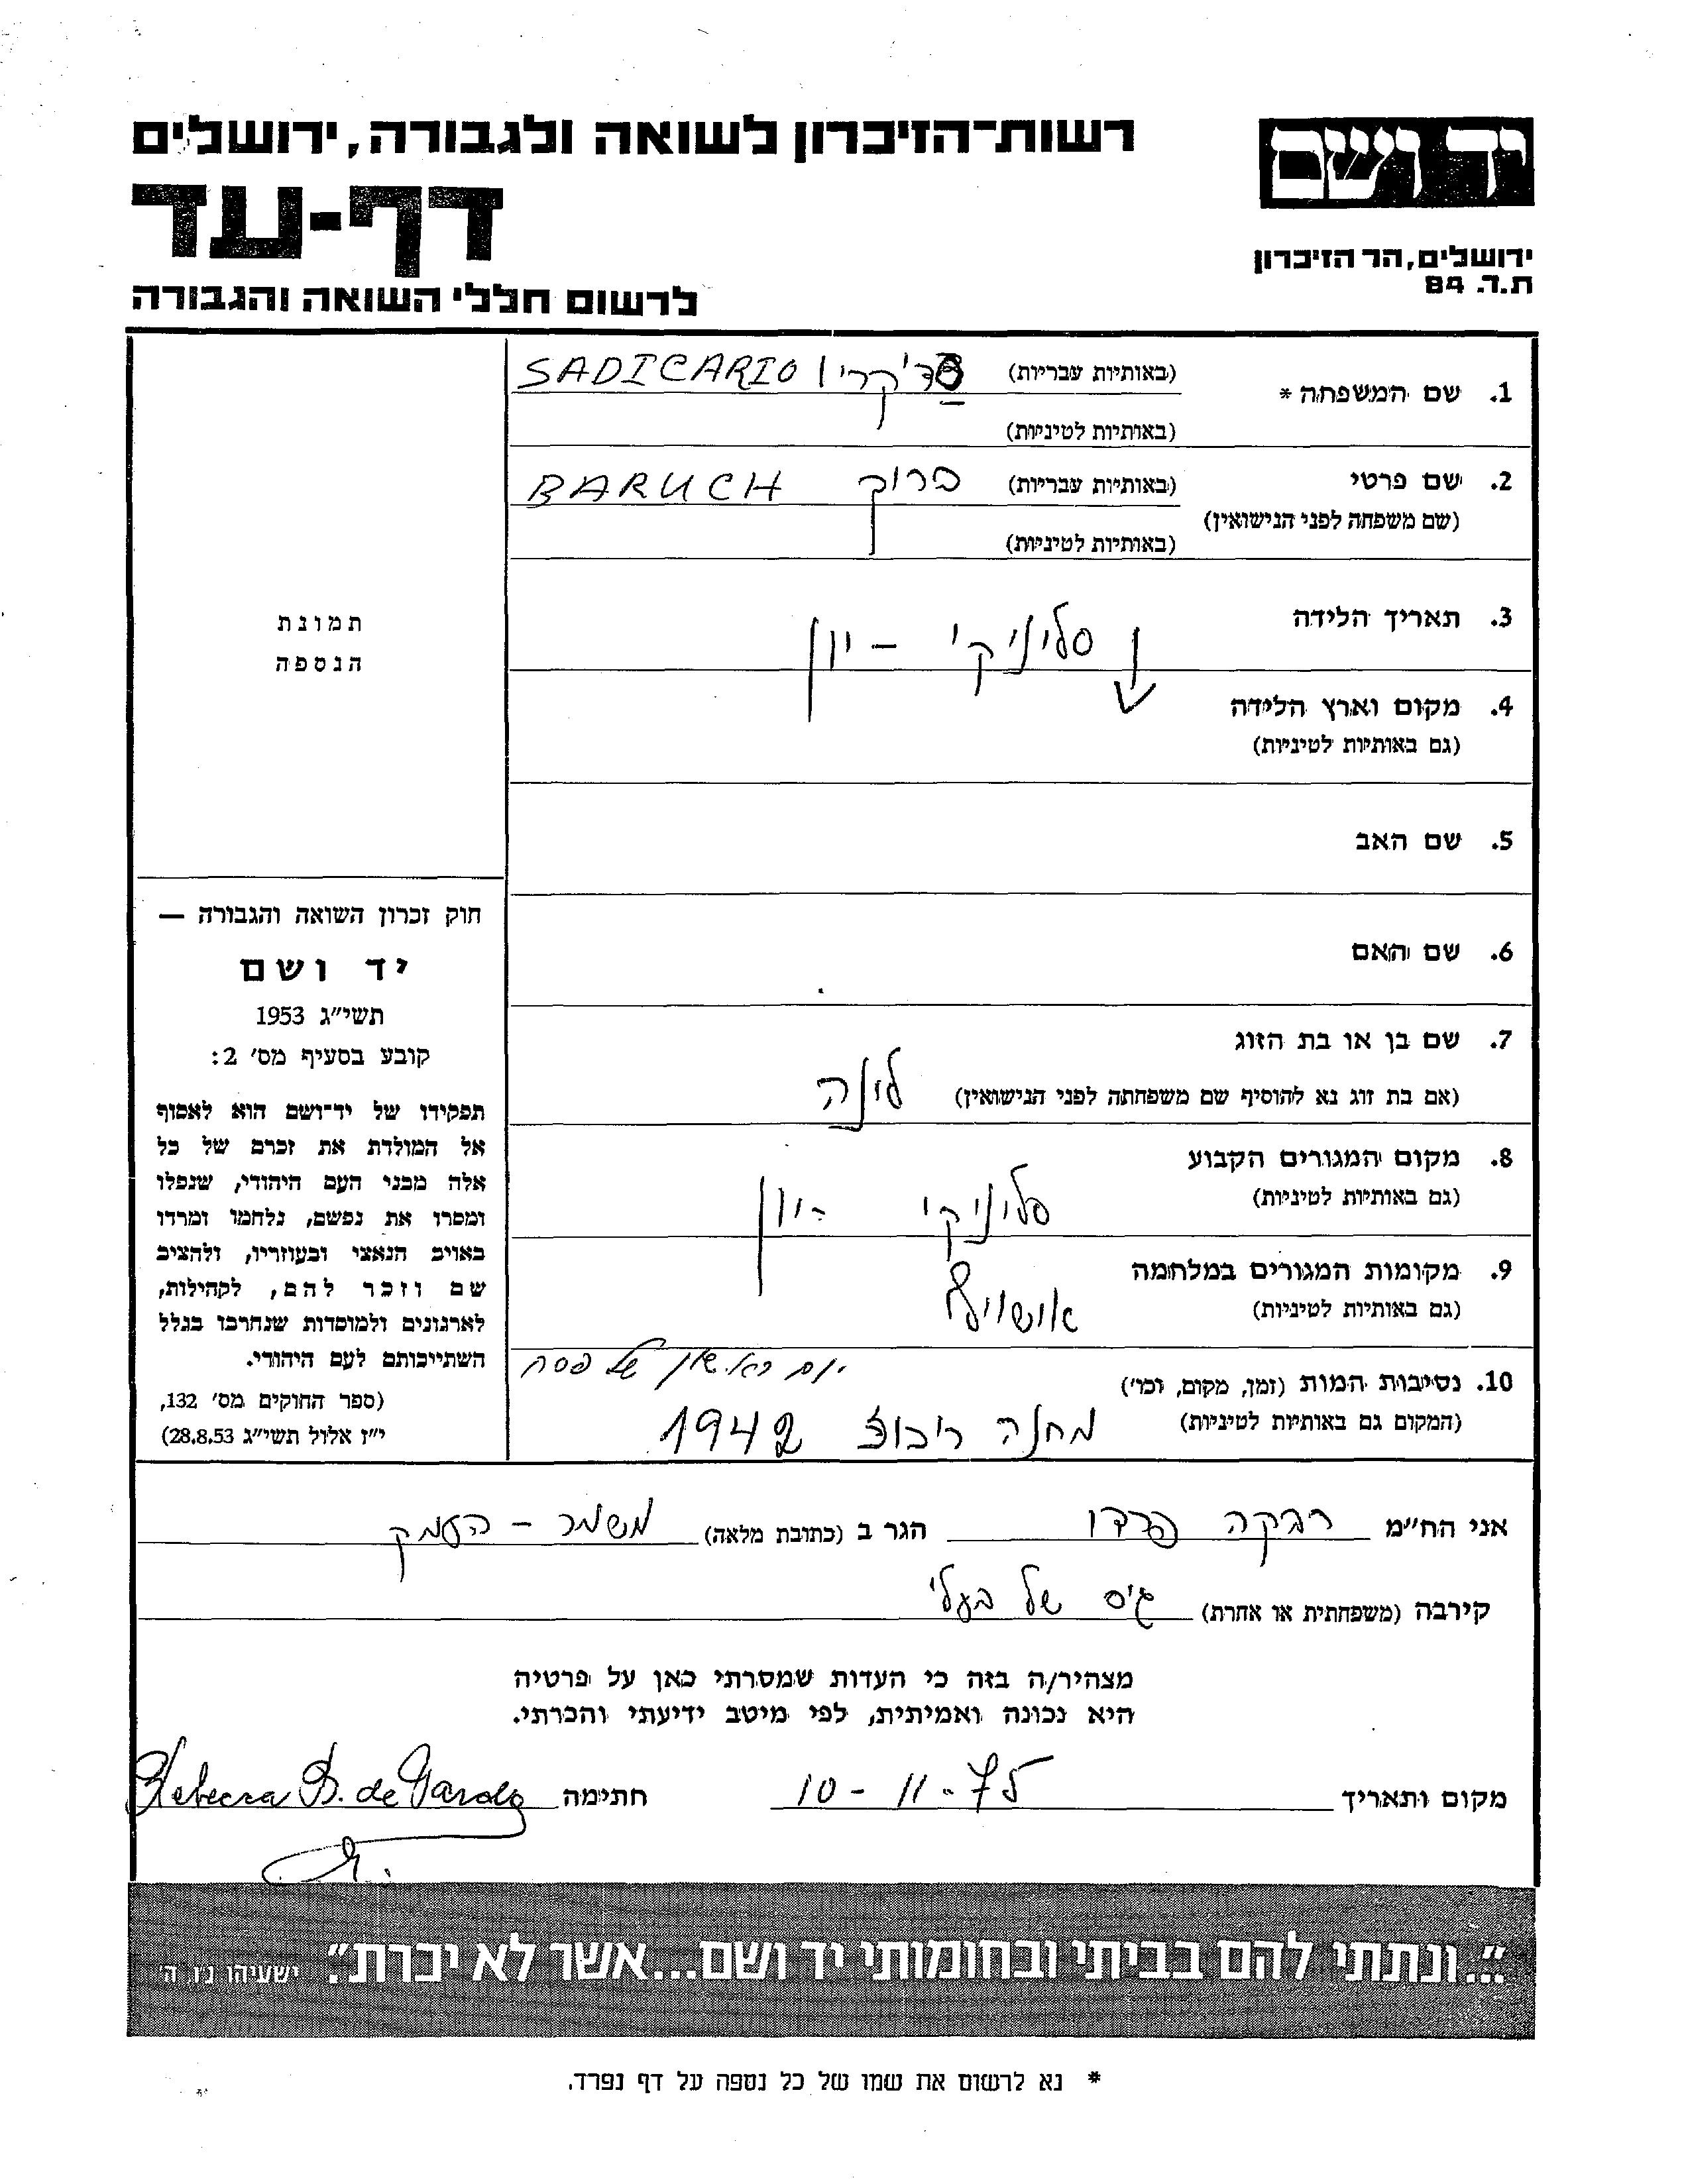 רשות־הזיכרון לשואה ולגבורה, ירושלים
יד ושם
דף-עד
ירושלים, הר הזיכרון
ת.ד. 84
לרשום חללי השואה והגבורה
1. שם המשפחה * (באותיות עבריות) סדיקריו SADICARIO
(באותיות לטיניות)
2. שם פרטי (באותיות עבריות) ברוך BARUCH
(שם משפחה לפני הנישואין)
(באותיות לטיניות)
3. תאריך הלידה סליניקי - יוון
4. מקום וארץ הלידה
(גם באותיות לטיניות)
5. שם האב
6. שם האם
7. שם בן או בת הזוג
(אם בת זוג נא להוסיף שם משפחתה לפני הנישואין) לונה
8. מקום המגורים הקבוע
(גם באותיות לטיניות) סלוניקי - יוון
9. מקומות המגורים במלחמה
(גם באותיות לטיניות) אושויץ
10. נסיבות המות (זמן, מקום, וכו') יום ראשון של פסח
(המקום גם באותיות לטיניות) מחנה ריכוז 1942
תמונת
הנספה
חוק זכרון השואה והגבורה —
יד ושם
תשי"ג 1953
קובע בסעיף מס' 2:
תפקידו של יד־ושם הוא לאסוף
אל המולדת את זכרם של כל
אלה מבני העם היהודי, שנפלו
ומסרו את נפשם, נלחמו ומרדו
באויב הנאצי ובעוזריו, ולהציב
שם וזכר להם, לקהילות,
לארגונים ולמוסדות שנחרבו בגלל
השתייכותם לעם היהודי.
(ספר החוקים מס' 132,
י"ז אלול תשי"ג 28.8.53)
אני הח"מ רבקה פרדו הגר ב (כתובת מלאה) משמר - העמק
קירבה (משפחתית או אחרת) גיס של בעלי
מצהיר/ה בזה כי העדות שמסרתי כאן על פרטיה
היא נכונה ואמיתית, לפי מיטב ידיעתי והכרתי.
מקום ותאריך 10-11-75 חתימה Rebecca B. de Pardo
"...ונתתי להם בביתי ובחומותי יד ושם...אשר לא יכרת". ישעיהו נ"ו, ה'
* נא לרשום את שמו של כל נספה על דף נפרד.